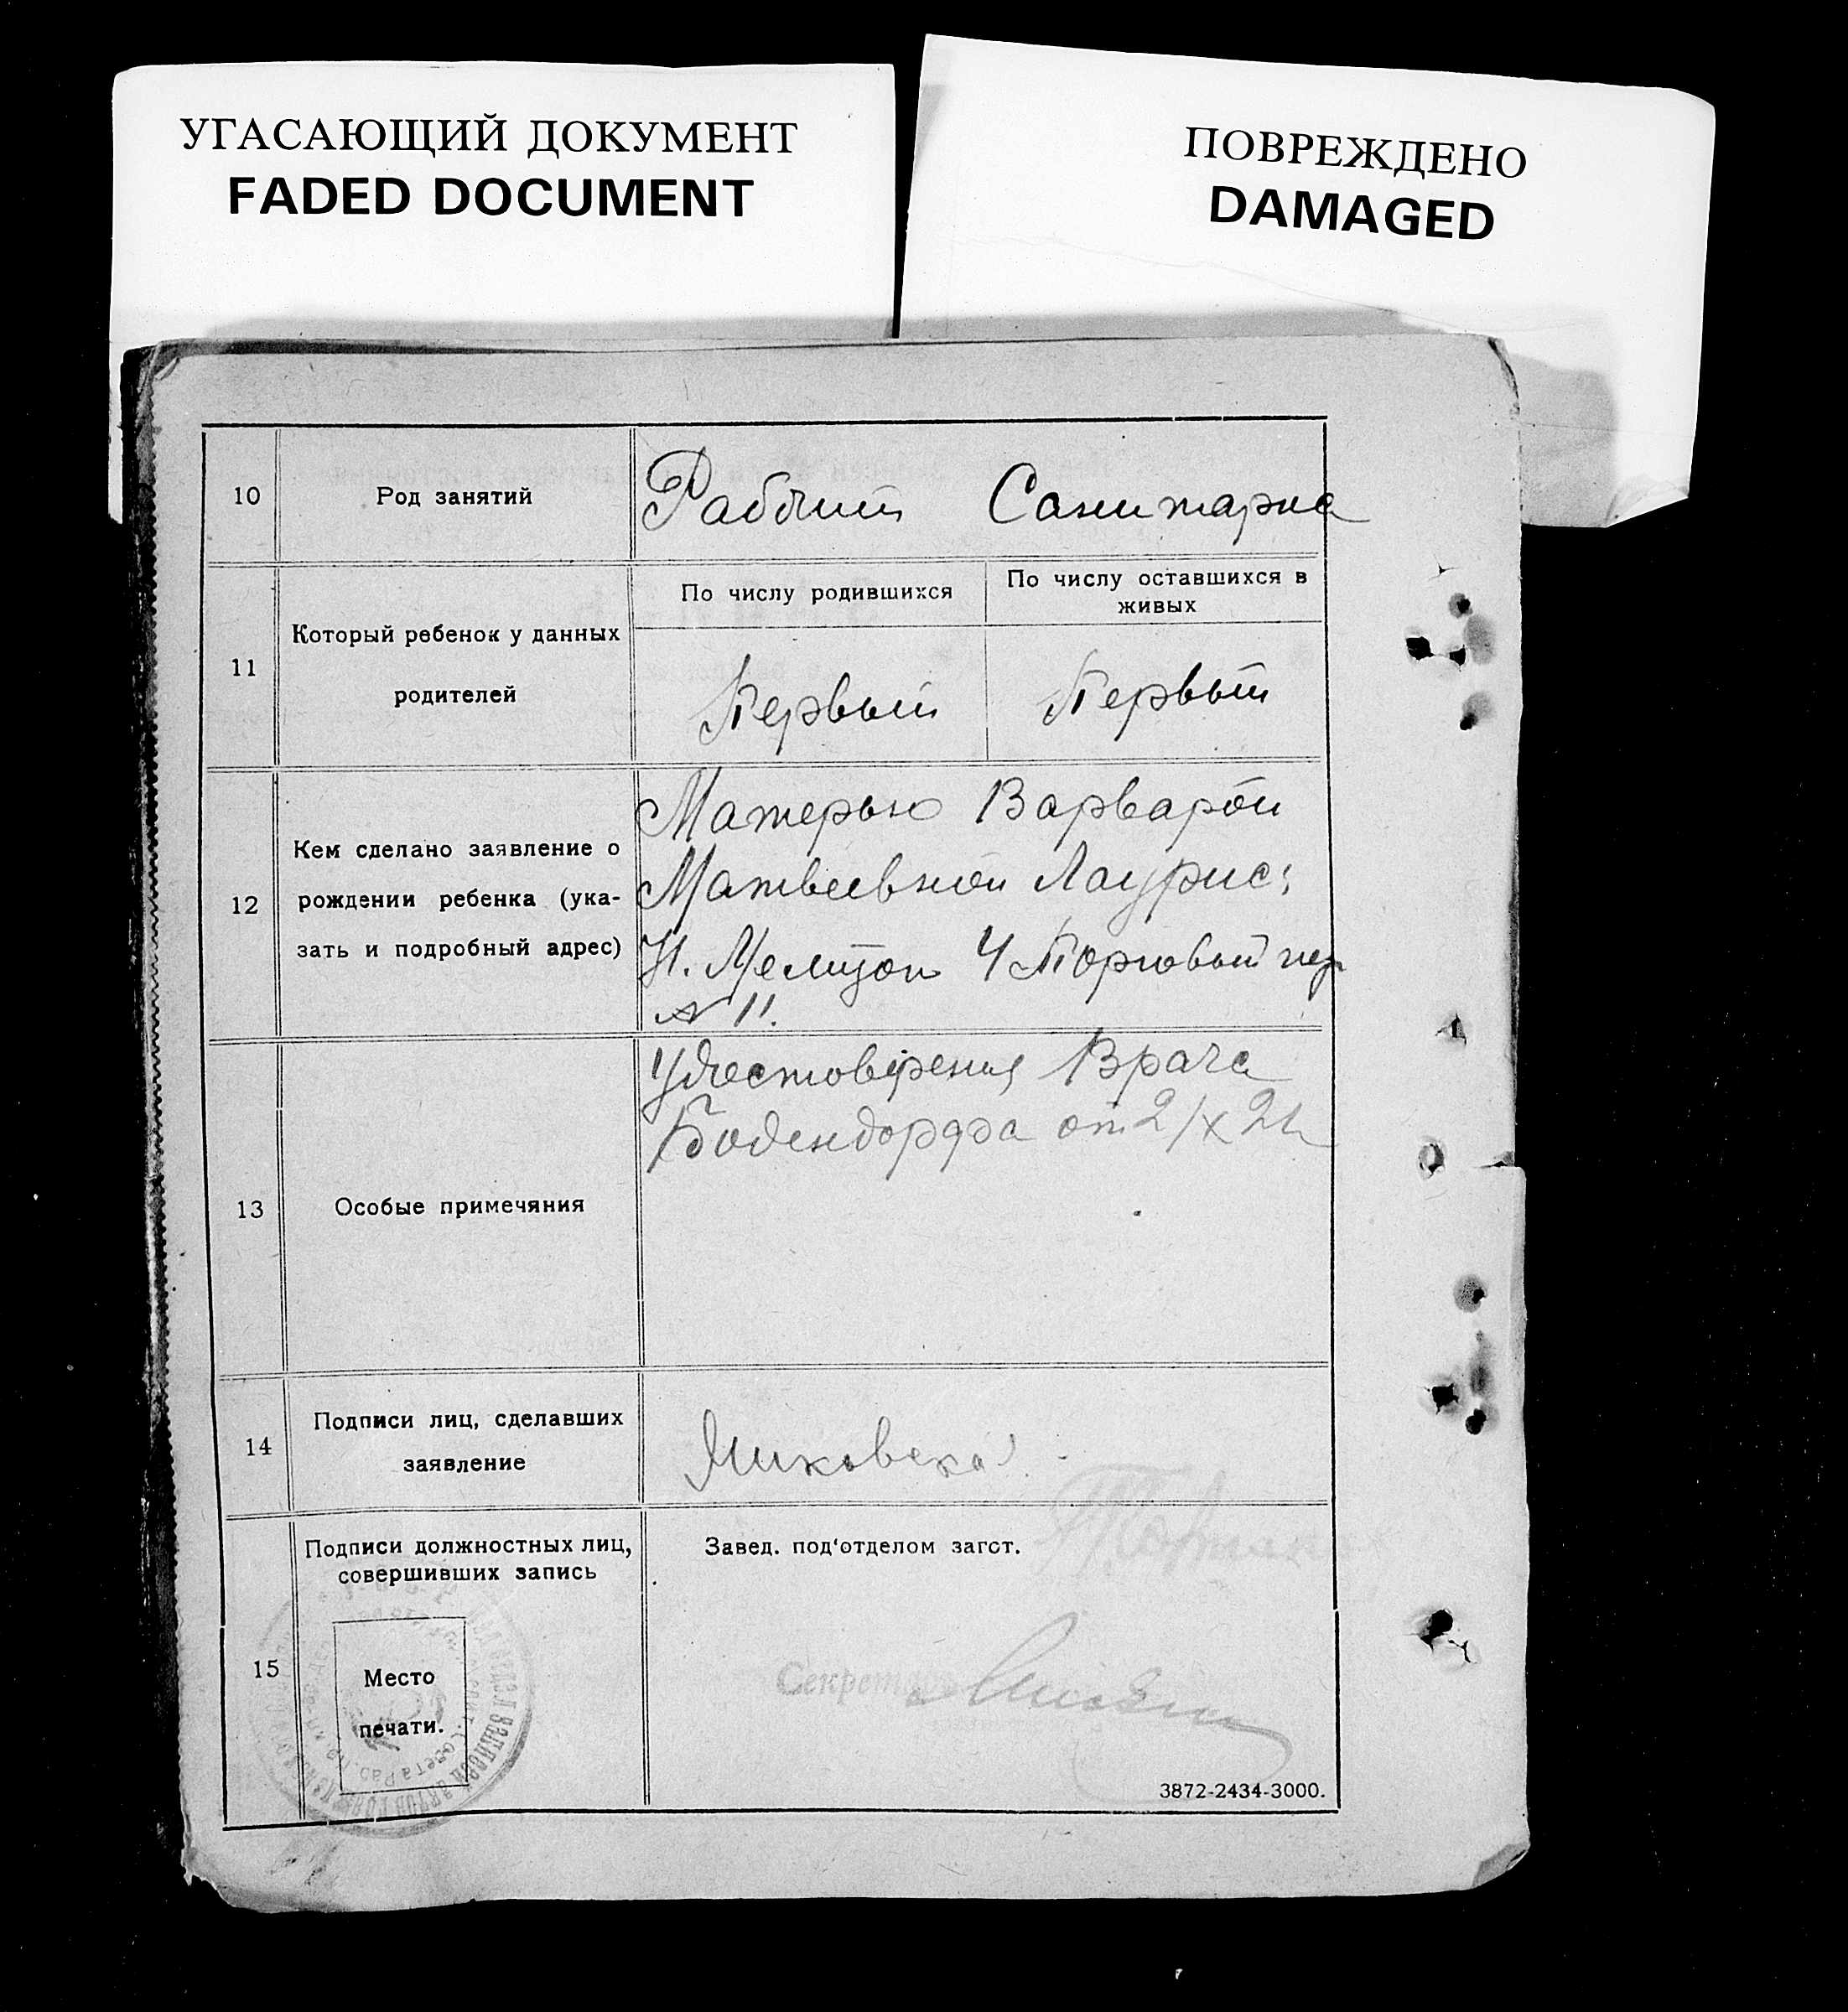 УГАСАЮЩИЙ ДОКУМЕНТ
FADED DOCUMENT
ПОВРЕЖДЕНО
DAMAGED
10
Род занятий
Рабочий Санитарка
11
Который ребенок у данных
родителей
По числу родившихся
По числу оставшихся в
живых
Первый
Первый
12
Кем сделано заявление о
рождении ребенка (ука-
зать и подробный адрес)
Матерью Варварой
Матвеевной Лаурис;
Н. 4 Торговый пер
№ 11.
13
Особые примечяния
Удостоверения Врача
Бодендорфа от 2/X
14
Подписи лиц, сделавших
заявление
15
Подписи должностных лиц,
совершивших запись
Место
печати.
Завед. под‘отделом загст.
Секретарь
3872-2434-3000.